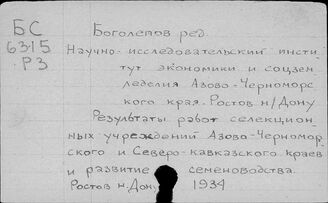 БС
6315
РЗ
Боголепов ред.
Научно-исследовательский инсти
тут экономики и соцзем
леделия Азово-Черноморс
кого края. Ростов н/Дону
Результаты работ селекцион
ных учреждений Азово-Черномор
ского и Северо-кавказского краев
и развитие семеноводства.
Ростов н.Дон. 1934